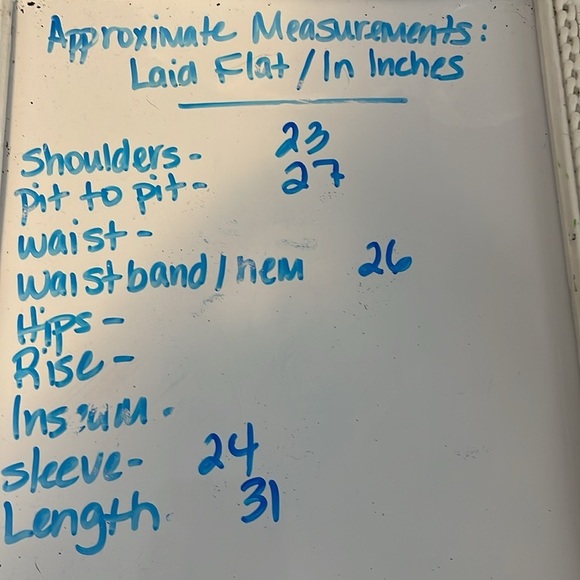 Approximate Measurements:
Laid Flat / In Inches
Shoulders - 23
pit to pit - 27
waist -
waistband / hem 26
Hips -
Rise -
Inseum -
sleeve - 24
Length - 31